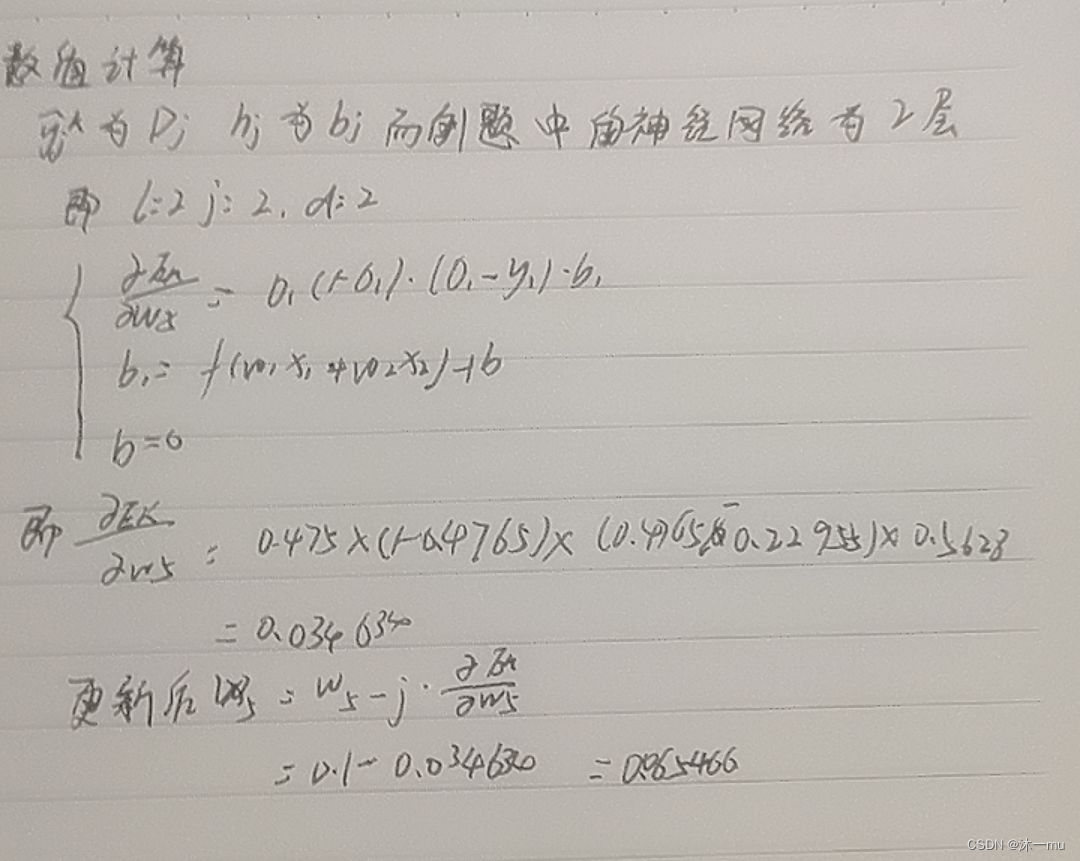 数值计算
为 Dj hj 为 bj 而例题中的神经网络为 2 层
即 l=2 j=2, d=2
∂Ek/∂w5 = O1(1-O1)·(O1-y1)·b1
b1= f(w1x1+w2x2)+b
b=0
即 ∂Ek/∂w5 = 0.475×(1-0.4765)×(0.4765-0.22955)×0.5623
= 0.034630
更新后 w5 = w5 - j·∂Ek/∂w5
= 0.1- 0.034630 = 0.065466
CSDN @沐一mu